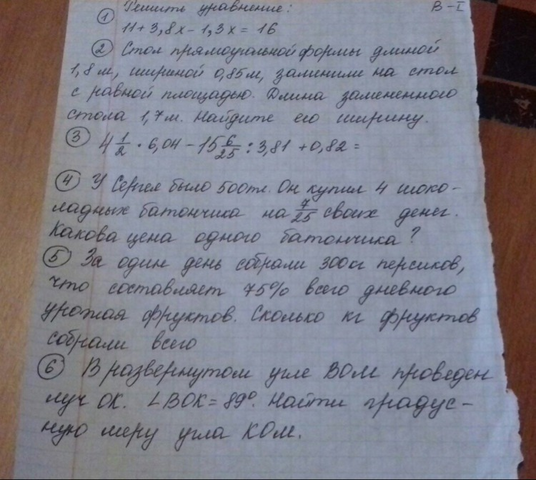 Решить уравнение: В-I
① 11+3,8x-1,3x=16
② Стол прямоугольной формы длиной
1,8 м, шириной 0,85 м, заменили на стол
с равной площадью. Длина замененного
стола 1,7 м. Найдите его ширину.
③ 4 1/2 · 6,04 - 15 6/25 : 3,81 + 0,82 =
④ У Сергея было 500тг. Он купил 4 шоко-
ладных батончика на 7/25 своих денег.
Какова цена одного батончика?
⑤ За один день собрали 300кг персиков,
что составляет 75% всего дневного
урожая фруктов. Сколько кг фруктов
собрали всего
⑥ В развернутом угле ВОМ проведен
луч ОК. ∠ВОК = 89°. Найти градус-
ную меру угла КОМ.